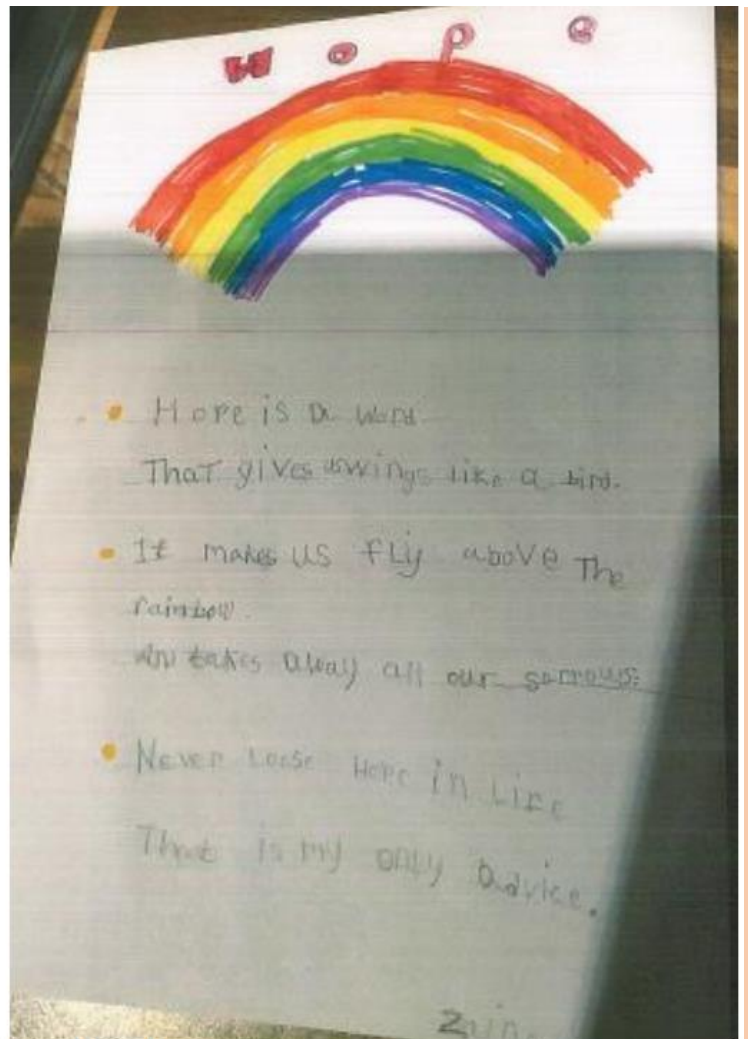 HOPE
Hope is a word
That gives us wings like a bird.
It makes us fly above The
rainbow.
And takes away all our sorrows.
Never Loose Hope in Life
That is my only advice.